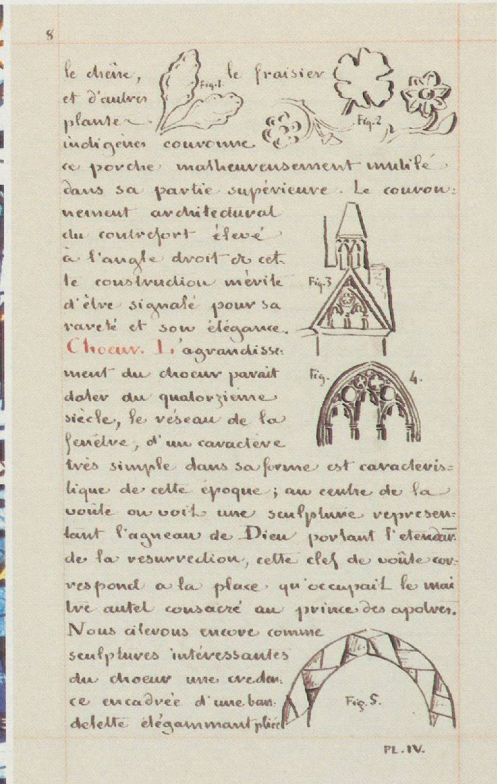 8
le chêne, Fig. 1. le fraisier
et d'autres
plantes Fig. 2
indigènes couronne
ce porche malheureusement mutilé
dans sa partie supérieure. Le couron-
nement architectural
du contrefort élevé
à l'angle droit de cet-
te construction mérite Fig. 3
d'être signalé pour sa
rareté et son élégance.
Choeur. L'agrandisse-
ment du choeur parait Fig. 4.
dater du quatorzième
siècle, le réseau de la
fenêtre, d'un caractère
très simple dans sa forme est caractéris-
tique de cette époque; au centre de la
voûte on voit une sculpture représen-
tant l'agneau de Dieu portant l'etendar
de la resurrection, cette clef de voûte cor-
respond a la place qu'occupait le mai
tre autel consacré au prince des apotres.
Nous citerons encore comme
sculptures intéressantes
du choeur une creden-
ce encadrée d'une ban- Fig. 5.
delette élégammant pliée
PL. IV.